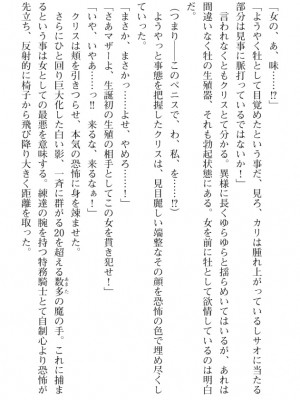 「女の、あ、味……!?」
「ようやく牡として目覚めたという事だ、見ろ、カリは腫れ上がっているしサオに当たる
部分は見事に脈打っているではないか！」
言われなくともクリスとて分かる。異様に長くゆらゆらと揺らめいてはいるが、あれは
間違いなく牡の生殖器、それも勃起状態にある。女を前に牡として欲情しているのは明白
（つまり――このペニスで、わ、私、を……!?）
ようやっと事態を把握したクリスは、見目麗しい端整なその顔を恐怖の色で埋め尽くし
ていった。
「まさか、まさかっ……よせ、やめろ……！」
「さあマザーよ、生誕初の生殖の相手としてこの女を貫き犯せ！」
「いや、いやあ……っ!!　来るな、来るなぁ！」
クリスは頬を引きつらせ、本気の恐怖に身を竦ませた。
さらにひと回り巨大化した白い影、一斉に群がる20を超える数多の魔の手。これに捕ま
るという事は女としての最悪を意味する。練達の腕を持つ特務騎士とて自制心より恐怖が
先立ち、反射的に椅子から飛び降り大きく距離を取った。